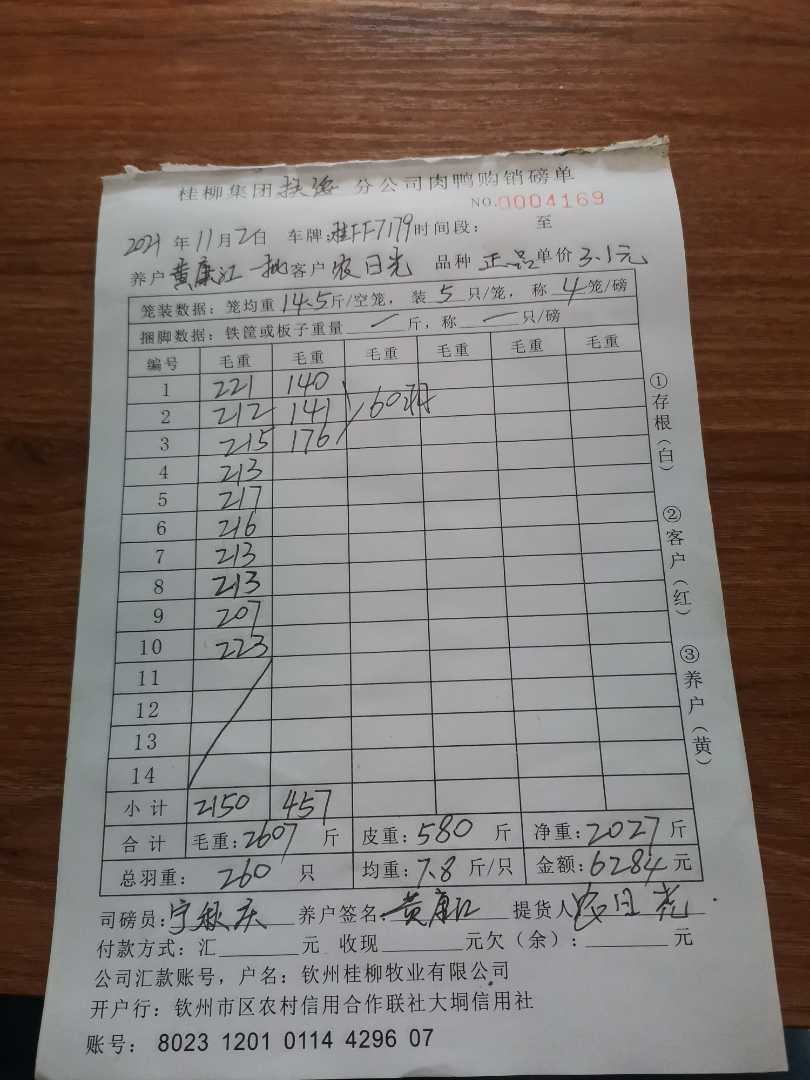 桂柳集团扶绥分公司肉鸭购销磅单
NO.0004169
2021年11月2日 车牌:桂FF7179时间段: 至
养户黄康江一批客户农日光 品种正品单价3.1元
笼装数据:笼均重14.5斤/空笼,装5只/笼,称4笼/磅
捆脚数据:铁筐或板子重量一斤,称一只/磅
编号 毛重 毛重 毛重 毛重 毛重 毛重
1 221 140
2 212 141 60羽
3 215 176
4 213
5 217
6 216
7 213
8 213
9 207
10 223
11
12
13
14
小计 2150 457
合计 毛重:2607斤 皮重:580斤 净重:2027斤
总羽重:260只 均重:7.8斤/只 金额:6284元
司磅员:宁 庆 养户签名:黄康江 提货人农日光
付款方式:汇 元 收现 元欠(余): 元
公司汇款账号,户名:钦州桂柳牧业有限公司
开户行:钦州市区农村信用合作联社大垌信用社
账号: 8023 1201 0114 4296 07
①存根(白)
②客户(红)
③养户(黄)